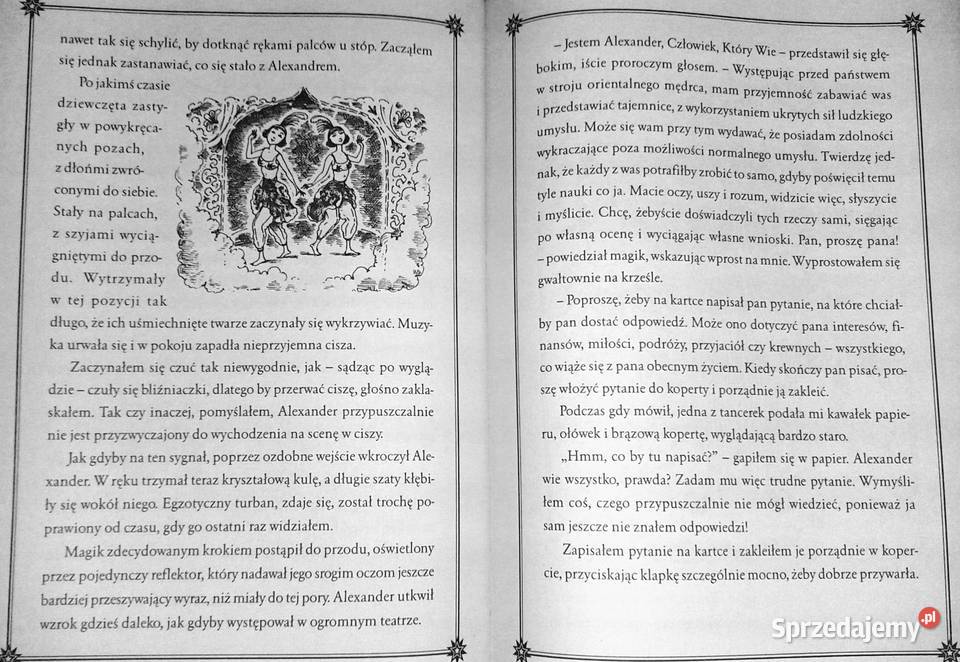 nawet tak się schylić, by dotknąć rękami palców u stóp. Zacząłem
się jednak zastanawiać, co się stało z Alexandrem.
Po jakimś czasie
dziewczęta zasty-
gły w powykręca-
nych pozach,
z dłońmi zwró-
conymi do siebie.
Stały na palcach,
z szyjami wycią-
gniętymi do przo-
du. Wytrzymały
w tej pozycji tak
długo, że ich uśmiechnięte twarze zaczynały się wykrzywiać. Muzy-
ka urwała się i w pokoju zapadła nieprzyjemna cisza.
Zaczynałem się czuć tak niewygodnie, jak – sądząc po wyglą-
dzie – czuły się bliźniaczki, dlatego by przerwać ciszę, głośno zakla-
skałem. Tak czy inaczej, pomyślałem, Alexander przypuszczalnie
nie jest przyzwyczajony do wychodzenia na scenę w ciszy.
Jak gdyby na ten sygnał, poprzez ozdobne wejście wkroczył Ale-
xander. W ręku trzymał teraz kryształową kulę, a długie szaty kłębi-
ły się wokół niego. Egzotyczny turban, zdaje się, został trochę po-
prawiony od czasu, gdy go ostatni raz widziałem.
Magik zdecydowanym krokiem postąpił do przodu, oświetlony
przez pojedynczy reflektor, który nadawał jego srogim oczom jeszcze
bardziej przeszywający wyraz, niż miały do tej pory. Alexander utkwił
wzrok gdzieś daleko, jak gdyby występował w ogromnym teatrze.
– Jestem Alexander, Człowiek, Który Wie – przedstawił się głę-
bokim, iście proroczym głosem. – Występując przed państwem
w stroju orientalnego mędrca, mam przyjemność zabawiać was
i przedstawiać tajemnice, z wykorzystaniem ukrytych sił ludzkiego
umysłu. Może się wam przy tym wydawać, że posiadam zdolności
wykraczające poza możliwości normalnego umysłu. Twierdzę jed-
nak, że każdy z was potrafiłby zrobić to samo, gdyby poświęcił temu
tyle nauki co ja. Macie oczy, uszy i rozum, widzicie więc, słyszycie
i myślicie. Chcę, żebyście doświadczyli tych rzeczy sami, sięgając
po własną ocenę i wyciągając własne wnioski. Pan, proszę pana!
– powiedział magik, wskazując wprost na mnie. Wyprostowałem się
gwałtownie na krześle.
– Poproszę, żeby na kartce napisał pan pytanie, na które chciał-
by pan dostać odpowiedź. Może ono dotyczyć pana interesów, fi-
nansów, miłości, podróży, przyjaciół czy krewnych – wszystkiego,
co wiąże się z pana obecnym życiem. Kiedy skończy pan pisać, pro-
szę włożyć pytanie do koperty i porządnie ją zakleić.
Podczas gdy mówił, jedna z tancerek podała mi kawałek papie-
ru, ołówek i brązową kopertę, wyglądającą bardzo staro.
„Hmm, co by tu napisać?” – gapiłem się w papier. Alexander
wie wszystko, prawda? Zadam mu więc trudne pytanie. Wymyśli-
łem coś, czego przypuszczalnie nie mógł wiedzieć, ponieważ ja
sam jeszcze nie znałem odpowiedzi!
Zapisałem pytanie na kartce i zakleiłem je porządnie w koper-
cie, przyciskając klapkę szczególnie mocno, żeby dobrze przywarła.
Sprzedajemy.pl